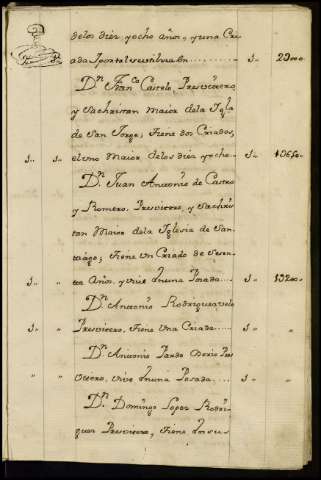 delos diez, y ocho años, y una Cria
da portal restilulxlon 1.. 2D000
Dn. Franco Castelo, Presvitero,
y Sachristan maior dela Yglª
de San Jorge; tiene dos Criados,
1.. 1.. el uno Maior delos diez y ocho 1..
Dn. Juan Antonio de Castro
y Romero, Presvitero, y Sachris
tan Maior dela Yglesia de San
tiago; tiene un Criado de Sesen
1.. .. ta Años, y vive en una Posada 1..
Dn. Antonio Rodriguez
1.. .. Presvitero, tiene Una Criada 1.. ..
Dn. Antonio Pardo Osorio Pres
.. .. vitero, vive en una Posada 1.. ..
Dn. Domingo Lopez Rodri
guez Presvitero, tiene